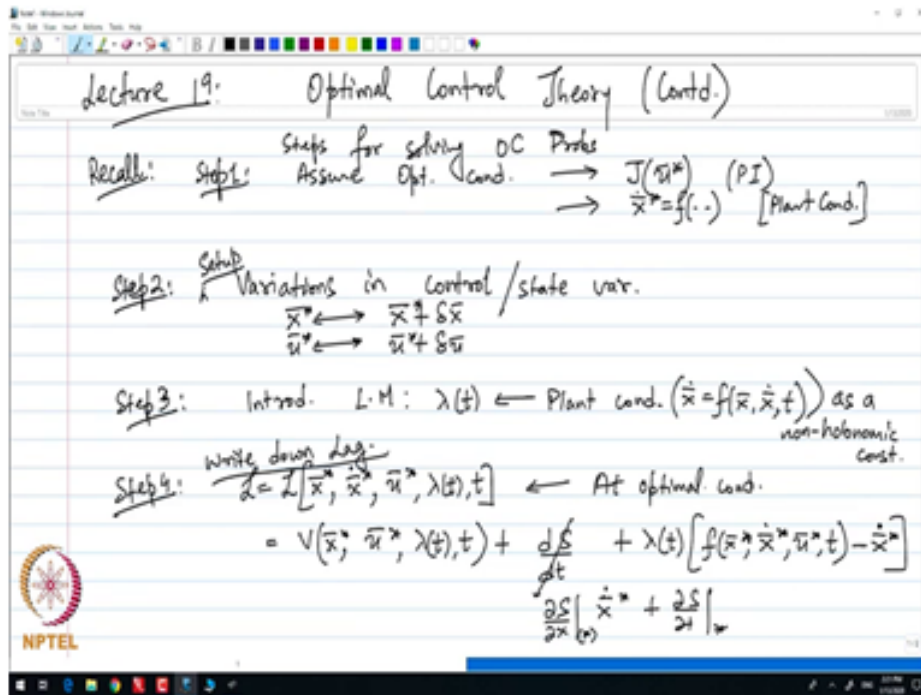 Lecture 19: Optimal Control Theory (Contd.)
Steps for solving OC Probs
Recall: Step1: Assume Opt. cond. → J(ū*) (PI)
→ ẋ̄* = f(..) [Plant Cond.]
Step2: Setup Variations in control/state var.
x̄* ⟷ x̄*+δx̄
ū* ⟷ ū*+δū
Step3: Introd. L.M: λ(t) ← Plant cond. (ẋ̄ = f(x̄, ẋ̄, t)) as a
non-holonomic
const.
write down Lag.
Step4: ℒ = ℒ[x̄*, ẋ̄*, ū*, λ(t), t] ← At optimal cond.
= V(x̄*, ū*, λ(t), t) + dS/dt + λ(t)[f(x̄*, ẋ̄*, ū*, t) - ẋ̄*]
∂S/∂x|(*) ẋ̄* + ∂S/∂t|*
NPTEL